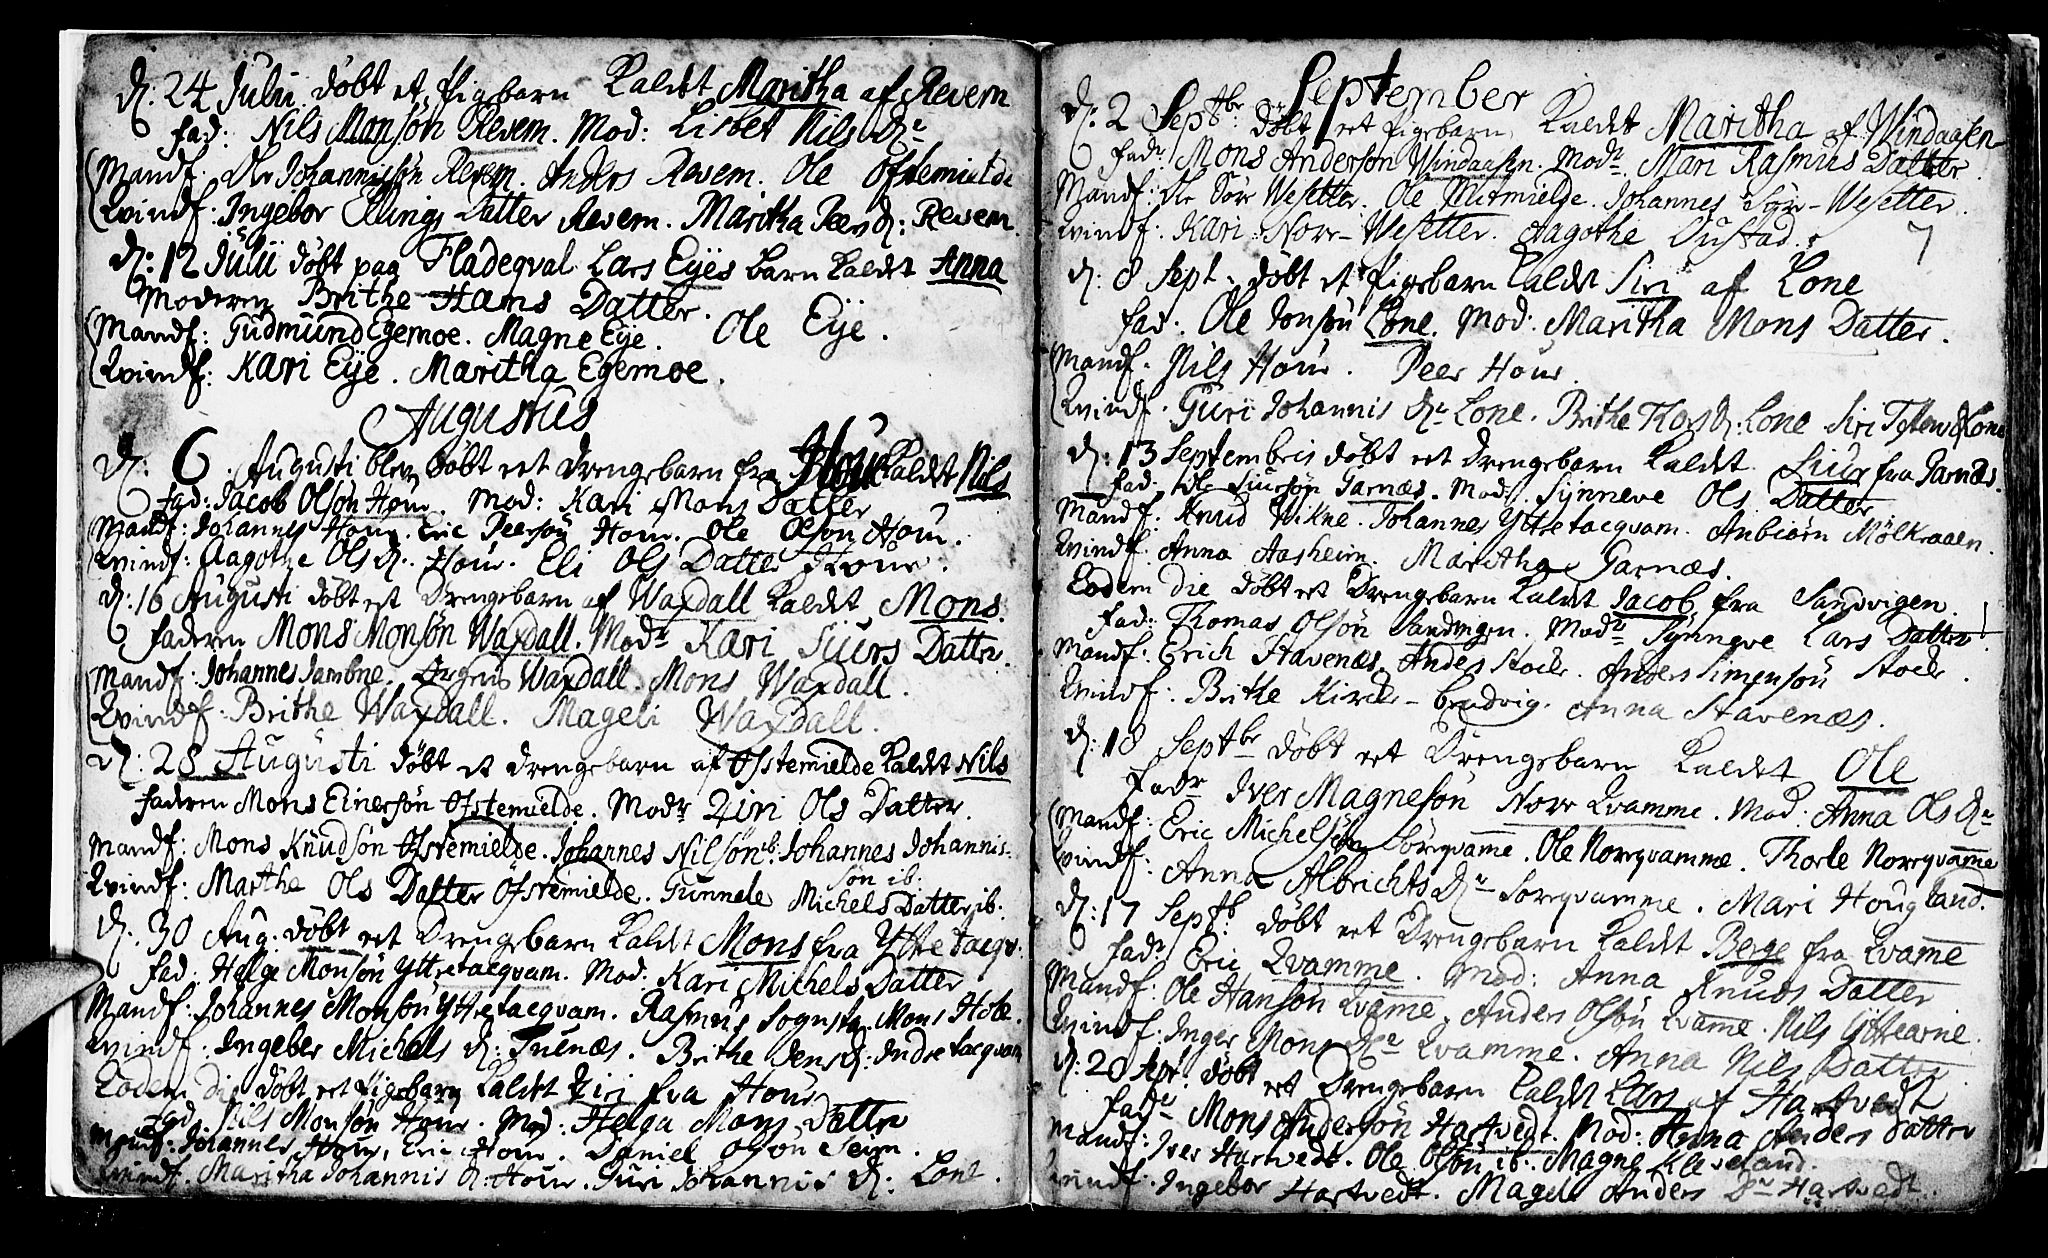 D: 24 Julii döbt et Pigebarn Kaldet Maritha af Revem
Fad: Nils Monsön Revem. Mod: Lisbet Nils Dr
Mandf: Ole Johannissön Revem. Anders Revem. Ole Ofstemielde
Qvindf: Ingebor Ellings Datter Revem. Maritha D: Revem.
D: 12 Julii döbt paa Fladeqval Lars Eÿes barn Kaldet Anna
Moderen Brithe Hans Datter.
Mandf: Gudmund Egemoe. Magne Eÿe. Ole Eÿe.
Qvindf: Kari Eÿe. Maritha Egemoe.
Augustus
D: 6. Augusti blev döbt eet drengebarn fra Hour Kaldet Nils
Fad: Jacob Olsön Hour. Mod: Kari Mons Datter
Mandf: Johannes Hour. Eric Peersön Hour. Ole Olson Hour.
Qvindf: Aagothe Ols D: Hour. Eli Ols Datter Hour.
D: 16 Augusti döbt eet Drengebarn af Waxdall Kaldet Mons.
Faderen Mons Monsön Waxdall. Modr Kari Siurs Datter.
Mandf: Johannes Jambne. Waxdall. Mons Waxdall.
Qvindf: Brithe Waxdall. Mageli Waxdall.
D: 28 Augusti döbt et drengebarn af Ofstemielde Kaldet Nils
Faderen Mons Einersön Ofstemielde. Modr Ziri Ols Datter.
Mandf: Mons Knudsön Ofstemielde. Johannes Nilsön ib: Johannes Johannis-
sön ib:
Qvindf: Marthe Ols Datter Ofstemielde. Gunnele Michels Datter ib.
D: 30 Aug: döbt eet Drengebarn Kaldet Mons fra Yttretacqv:
Fad: Helge Monsön Yttretacqvam. Mod: Kari Michels Datter
Mandf: Johannes Monsön Yttretacqvam. Rasmus Mons Hole.
Qvindf: Ingeber Michels D: Tuenæs. Brithe Jens D: Indretacqvam
Eodem die döbt eet Pigebarn Kaldet Ziri fra Hour
Fad: Nils Monsön Hour. Mod: Helga Mons Datter
Mandf: Johannes Hour, Eric Hour. Daniel Olsön Seim.
Qvindf. Maritha Johannis D: Hour. Guri Johannis D: Lone.
September
D: 2 Septbr: döbt eet Pigebarn Kaldet Maritha af Windaasen
Fadr Mons Anderson Windaasen. Modr Mari Rasmus Datter
Mandf: Ole Sör Wesetter. Ole Mitmielde. Johannes Sör-Wesetter.
Qvindf. Kari Norr-Wesetter. Aagothe Dustad.
7
D: 8 Sept. döbt et Pigebarn Kaldet Siri af Lone
Fad: Ole Jonsön Lone. Mod: Maritha Mons Datter.
Mandf. Nils Hour. Peer Hour.
Qvindf. Guri Johannis Dr Lone. Brithe D: Lone. Siri Lone
D: 13 Septembris döbt eet drengebarn Kaldet Siur fra Garnæs.
Fad. Ole Siursön Garnæs. Mod: Synneve Ols Datter
Mandf. Knud Wikne. Johannes Yttretacqvam. Anbiörn Mölkraaen.
Qvindf. Anna Aasheim. Maritha Garnæs.
Eodem die döbt eet Drengebarn Kaldet Jacob fra Sandvigen.
Fad: Thomas Olsön Sandvigen. Modr Synneve Lars Datter
Mandf: Erich Stavenæs. Anders Stock. Anders Simensön Stock.
Qvindf: Brithe Kirck-bredvig. Anna Stavenæs.
D: 18 Septbr döbt eet Drengebarn Kaldet Ole
Fadr Iver Magnesön Norr Qvamme. Mod: Anna Ols Dr
Mandf: Eric Michelsön Söreqvamme. Ole Noreqvamme. Thorle Noreqvamme
Qvindf: Anna Albrichts Dr Soreqvamme. Mari Hougland.
D: 17 Septb: döbt eet Drengebarn Kaldet Berge fra Qvame
Fadr Eric Qvamme. Mod: Anna Knuds Datter
Mandf: Ole Hansön Qvame. Anders Olsön Qvame. Nils Yttrearne.
Qvindf: Inger Mons Dr Qvamme. Anna Nils Datter
D: 20 Sept: döbt eet Drengebarn Kaldet Lars af Hartvedt
Fadr Mons Andersön Hartvedt. Mod: Anna Anders Datter
Mandf: Iver Hartvedt. Ole Olsön ib: Magne Kleveland.
Qvindf. Ingebor Hartvedt. Magele Anders Dr Hartvedt.